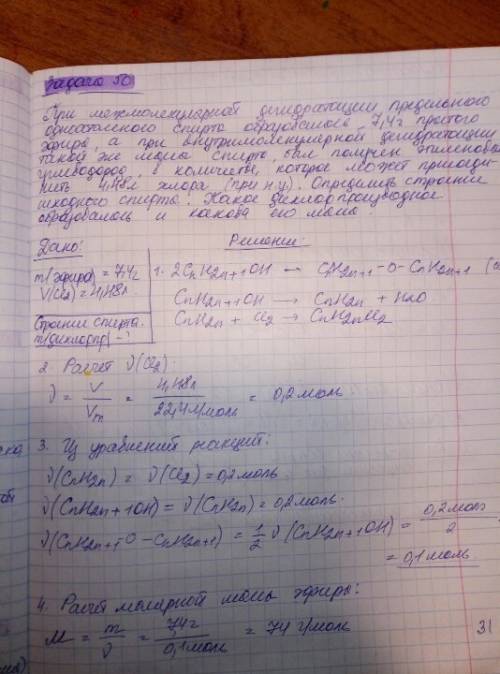 Задача 50
При межмолекулярной дегидратации предельного
одноатомного спирта образовалось 7,4г простого
эфира, а при внутримолекулярной дегидратации
такой же массы спирта, был получен этиленовый
углеводород, количество, которое может присоеди-
нить 4,48л хлора (при н.у). Определить строение
исходного спирта. Какое дихлорпроизводное
образовалось и какова его масса?
Дано: Решение:
m(эфира) = 7,4г 1. 2CnH2n+1OH → CnH2n+1-O-CnH2n+1
V(Cl2) = 4,48л
CnH2n+1OH → CnH2n + H2O
Строение спирта - CnH2n + Cl2 → CnH2nCl2
m(дихлорпр) - ?
2. Расчет ν(Cl2):
ν = V/Vm = 4,48л/22,4л/моль = 0,2 моль
3. Из уравнений реакций:
ν(CnH2n) = ν(Cl2) = 0,2 моль
ν(CnH2n+1OH) = ν(CnH2n) = 0,2 моль.
ν(CnH2n+1O-CnH2n+1) = 1/2 ν(CnH2n+1OH) = 0,2моль/2
= 0,1 моль
4. Расчет молярной массы эфира:
M = m/ν = 7,4г/0,1моль = 74 г/моль
31